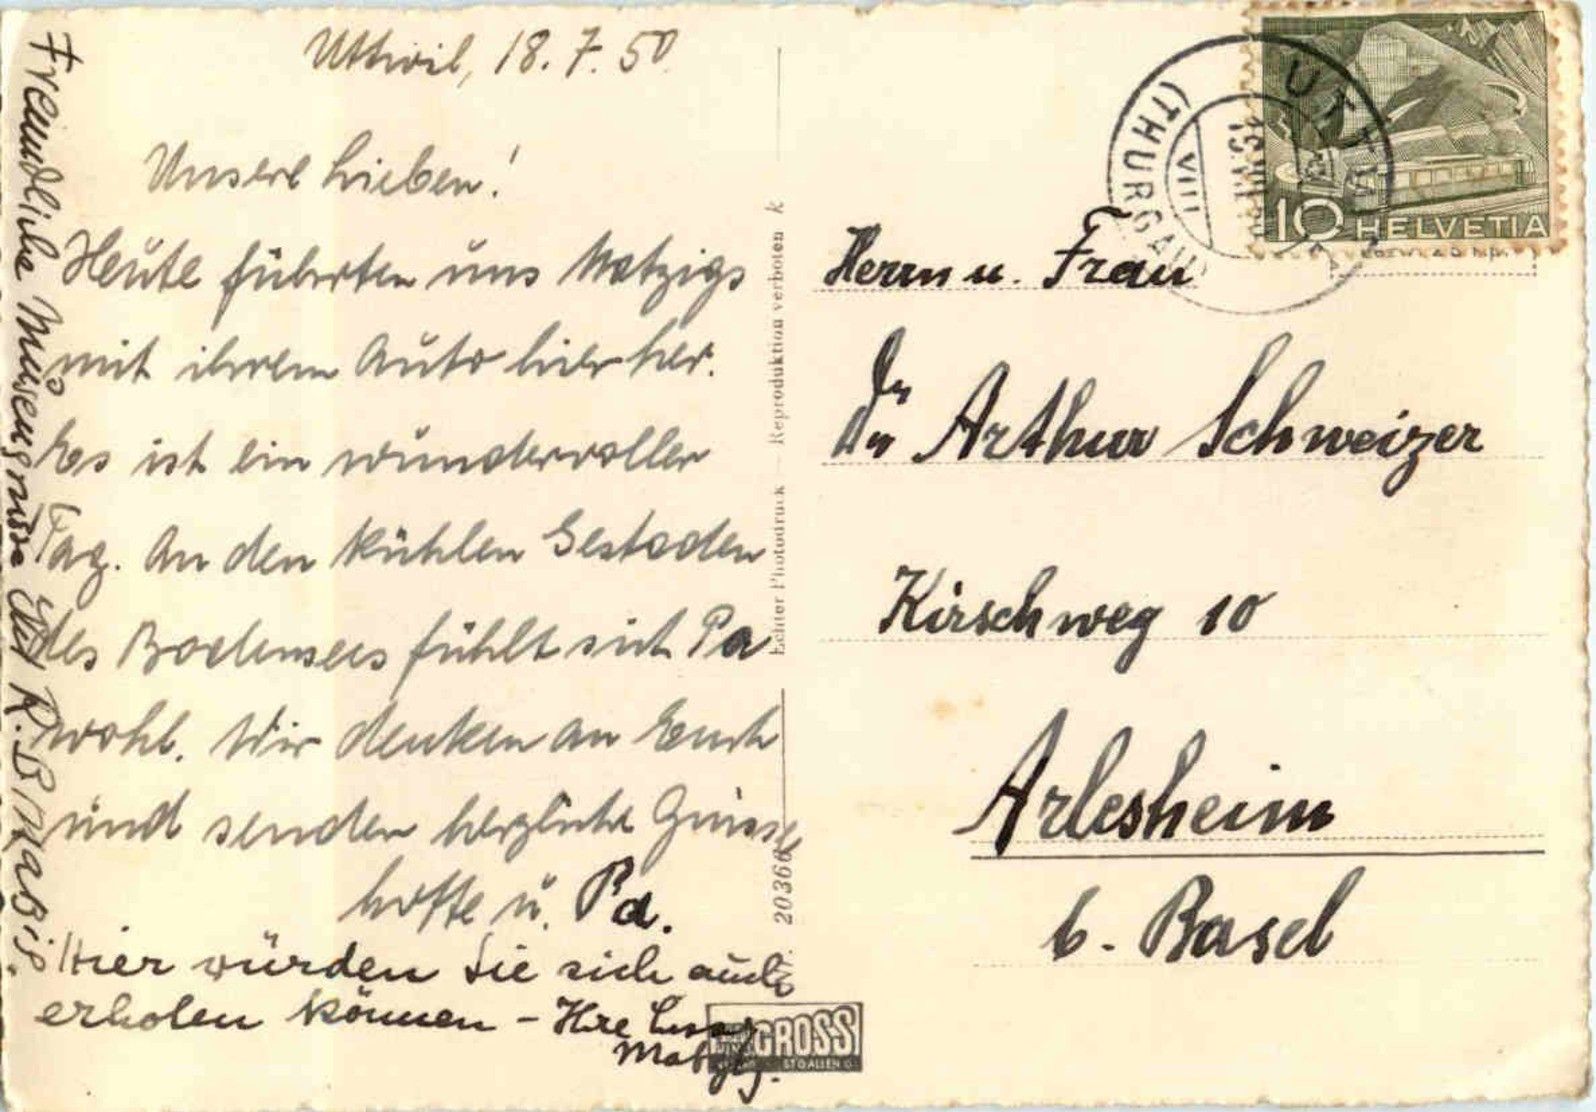 Uttwil, 18.7.50
Unsere Lieben!
Heute führten uns Matzigs
mit ihrem Auto hierher.
Es ist ein wundervoller
Tag. An den kühlen Gestaden
des Bodensees fühlt sich Pa
wohl. Wir denken an Euch
und senden herzliche Grüsse
u. Pa.
Hier würden Sie sich auch
erholen können - Ihre
Matzig.
Freundliche
R. B.
Echter Photodruck - Reproduktion verboten k
20366
GROSS
ST. GALLEN
UTTWIL
(THURGAU)
VIII
10 HELVETIA
Herrn u. Frau
Dr
Dr Arthur Schweizer
Kirschweg 10
Arlesheim
b. Basel